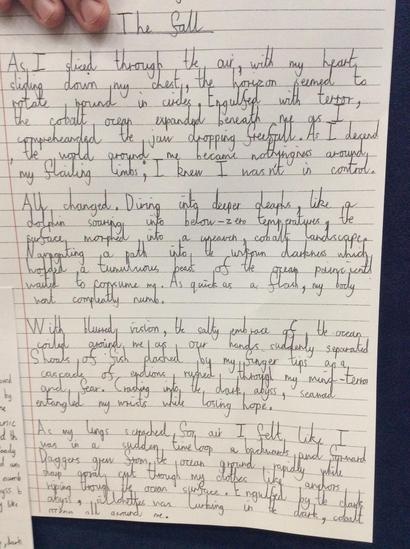 The fall
As I sliced through the air, with my heart
sliding down my chest, the horizon seemed to
rotate round in circles. Engulfed with terror,
the cobalt ocean expanded beneath me as I
comprehended the jaw dropping freefall. As I decend
, the world around me became nothingness around
my flailing limbs, I knew I wasnt in control.
All changed. Diving into deeper depths, like a
dolphin soaring into below-zero temperatures, the
surface morphed into a cobalt landscape.
a path into the darkness which
a tumultuous beast of the ocean
waited to consume me. As quick as a flash, my body
went completly numb.
With blurred vision, the salty embrace of the ocean
coiled around me as our hands suddenly separated
Shoals of fish dashed by my finger tips as a
cascade of emotions rushed through my mind-terror
and fear. Crashing into the dark abyss, seaweed
entangled my wrists while losing hope.
As my lungs scratched for air I felt like I
was in a sudden timeloop a backwards and forward
Daggers grew from the ocean ground rapidly while
sharp corals cut through my clothes like anchors
ripping through the ocean surface. Engulfed by the dark
abyss, was lurking in the dark, cobalt
ocean all around me.